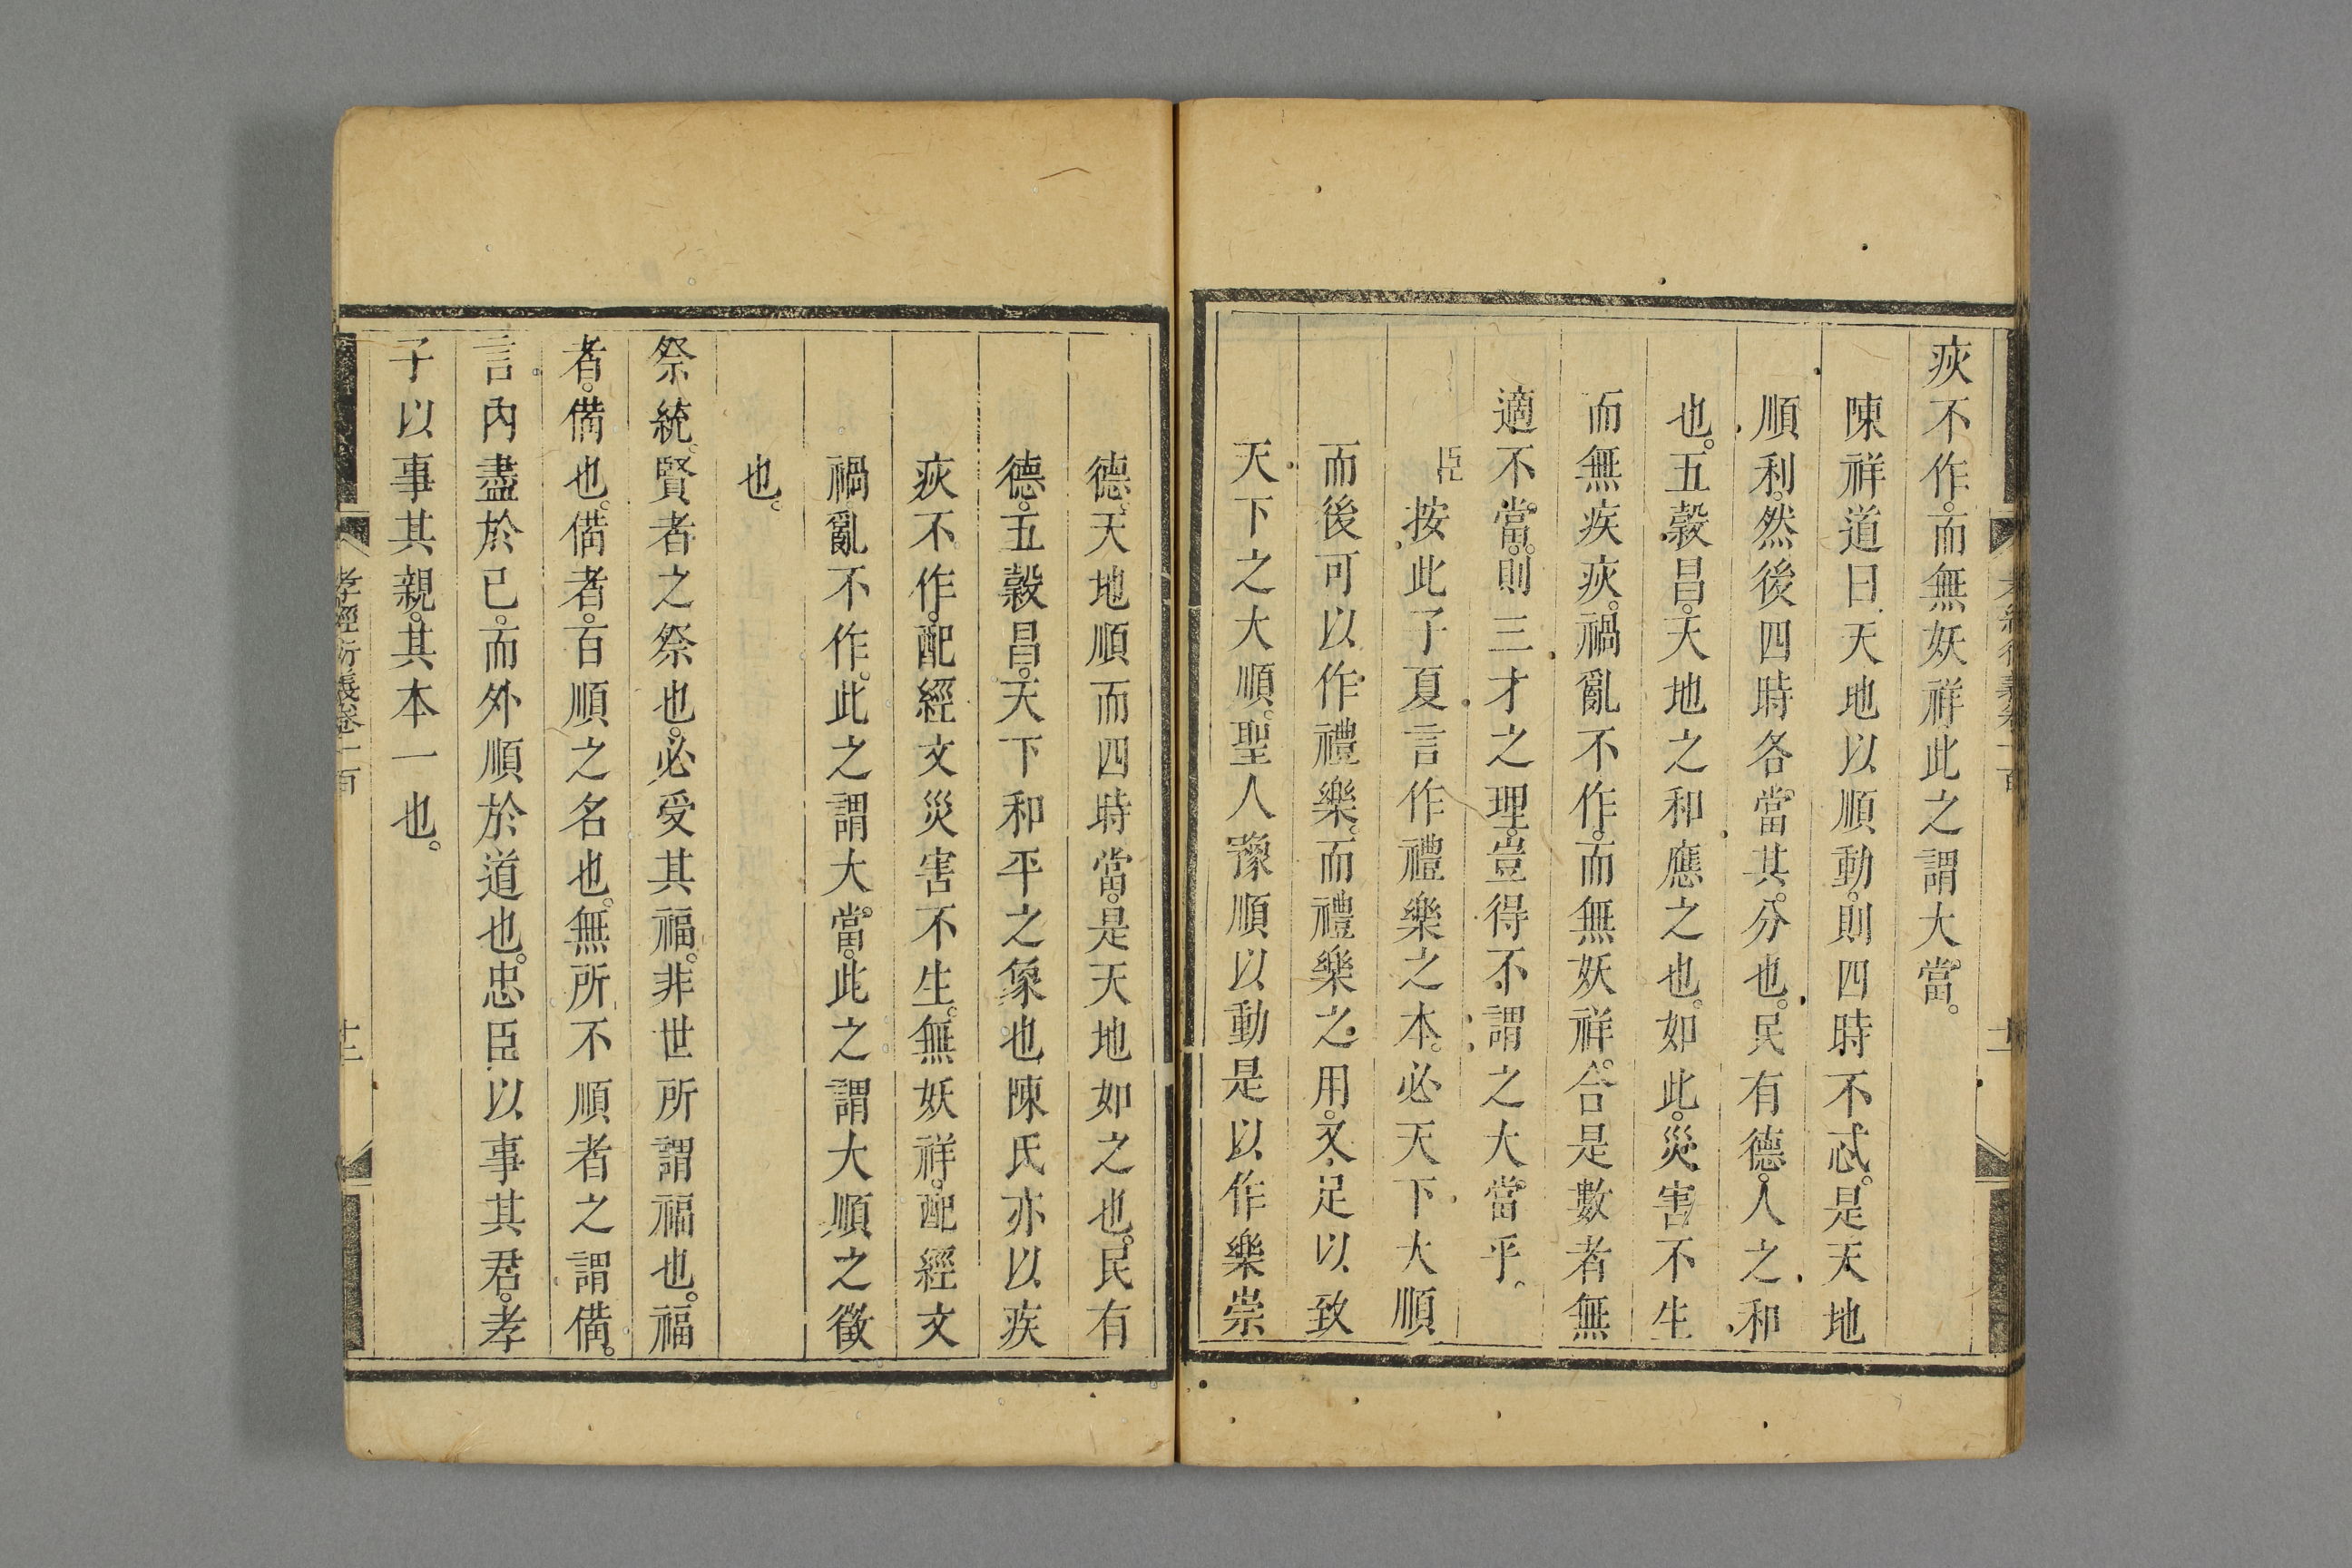 疢不作。而無妖祥。此之謂大當。
陳祥道曰。天地以順動。則四時不忒。是天地
順利。然後四時各當其分也。民有德。人之和
也。五穀昌。天地之和應之也。如此。災害不生
而無疾疢。禍亂不作。而無妖祥。合是數者無
適不當。則三才之理。豈得不謂之大當乎。
臣按此子夏言作禮樂之本。必天下大順
而後可以作禮樂。而禮樂之用。又足以致
天下之大順。聖人豫順以動是以作樂崇
德。天地順而四時當。是天地如之也。民有
德。五穀昌。天下和平之象也。陳氏亦以疾
疢不作。配經文災害不生。無妖祥。配經文
禍亂不作。此之謂大當。此之謂大順之徵
也。
祭統。賢者之祭也。必受其福。非世所謂福也。福
者。備也。備者。百順之名也。無所不順者之謂備。
言內盡於已。而外順於道也。忠臣以事其君。孝
子以事其親。其本一也。
孝經衍義卷一百